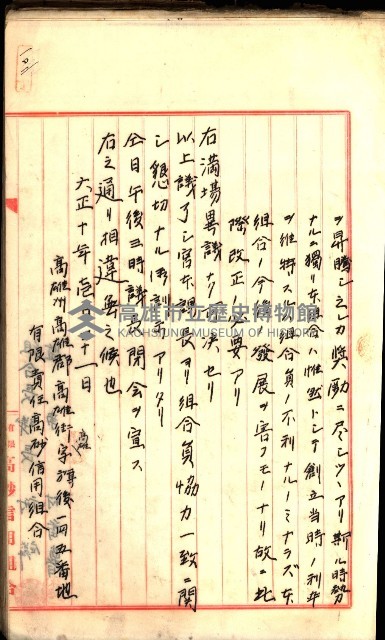 ヲ昇騰シ之レカ奨励ニ尽シツヽアリ斯ル時勢
ナルニ獨リ本組合ハ依然トシテ創立当時ノ利率
ヲ維持スルハ組合員ノ不利ナルノミナラズ本
組合ノ今後発展ヲ害フモノナリ故ニ此
際改正ノ必要アリ
右満場異議ナク可決セリ
以上議了シ宮本課長ヨリ組合員協力一致ニ関
シ懇切ナル御訓示アリタリ
仝日午後三時議長閉会ヲ宣ス
右之通リ相違無之候也
大正十年壱月三十一日
高雄州高雄郡高雄街字旗後一四五番地
有限責任高砂信用組合
高雄市立歷史博物館
KAOHSIUNG MUSEUM OF HISTORY
高砂信用組合